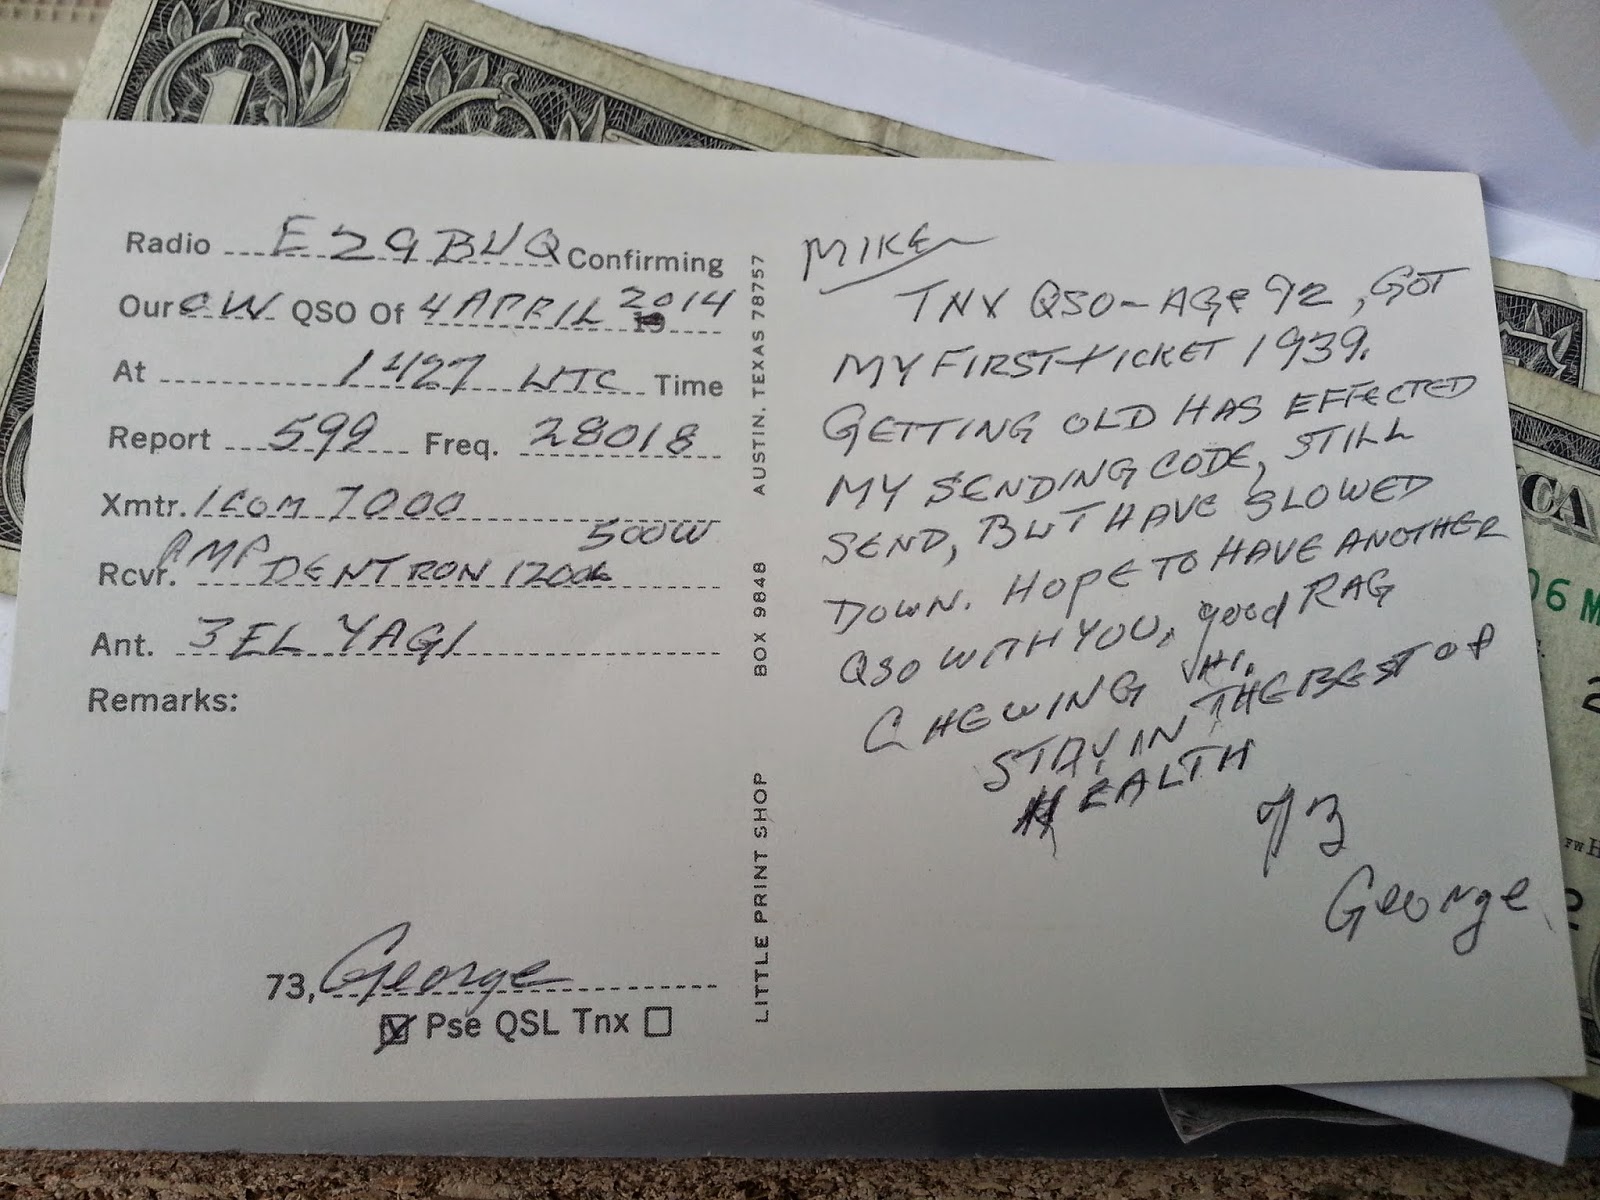 Radio E29BUQ Confirming
Our CW QSO Of 4 APRIL 2014
At 1427 UTC Time
Report 599 Freq. 28018
Xmtr. ICOM 7000
500W
Rcvr. AMP DENTRON 1200L
Ant. 3 EL YAGI
Remarks:
73, George
Pse QSL Tnx
LITTLE PRINT SHOP BOX 9848 AUSTIN, TEXAS 78757
MIKE
TNX QSO - AGE 92, GOT
MY FIRST TICKET 1939.
GETTING OLD HAS EFFECTED
MY SENDING CODE, STILL
SEND, BUT HAVE SLOWED
DOWN. HOPE TO HAVE ANOTHER
QSO WITH YOU, good RAG
CHEWING HI.
STAY IN THE BEST OF
HEALTH
73
George
1
CA
06 M
2
FW H
2